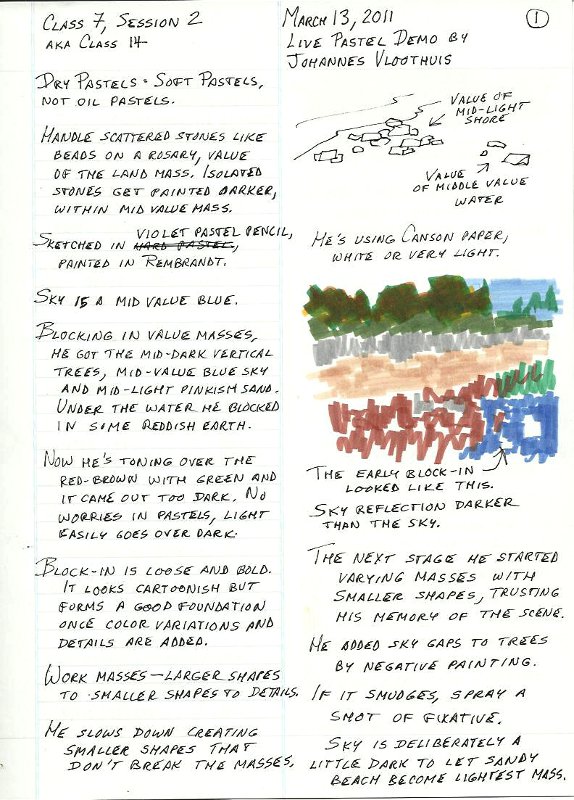 Class 7, Session 2
AKA Class 14
Dry Pastels = Soft Pastels,
not oil pastels.
Handle scattered stones like
beads on a rosary, value
of the land mass. Isolated
stones get painted darker,
within mid value mass.
Sketched in hard pastel, violet pastel pencil,
painted in Rembrandt.
Sky is a mid value blue.
Blocking in value masses,
he got the mid-dark vertical
trees, mid-value blue sky
and mid-light pinkish sand.
Under the water he blocked
in some reddish earth.
Now he's toning over the
red-brown with green and
it came out too dark. No
worries in pastels, light
easily goes over dark.
Block-in is loose and bold.
It looks cartoonish but
forms a good foundation
once color variations and
details are added.
Work masses — larger shapes
to smaller shapes to details.
He slows down creating
smaller shapes that
don't break the masses.
March 13, 2011
1
Live Pastel Demo by
Johannes Vloothuis
Value of
mid-light
shore
Value
of middle value
water
He's using Canson paper,
white or very light.
The early block-in
looked like this.
Sky reflection darker
than the sky.
The next stage he started
varying masses with
smaller shapes, trusting
his memory of the scene.
He added sky gaps to trees
by negative painting.
If it smudges, spray a
shot of fixative.
Sky is deliberately a
little dark to let sandy
beach become lightest mass.